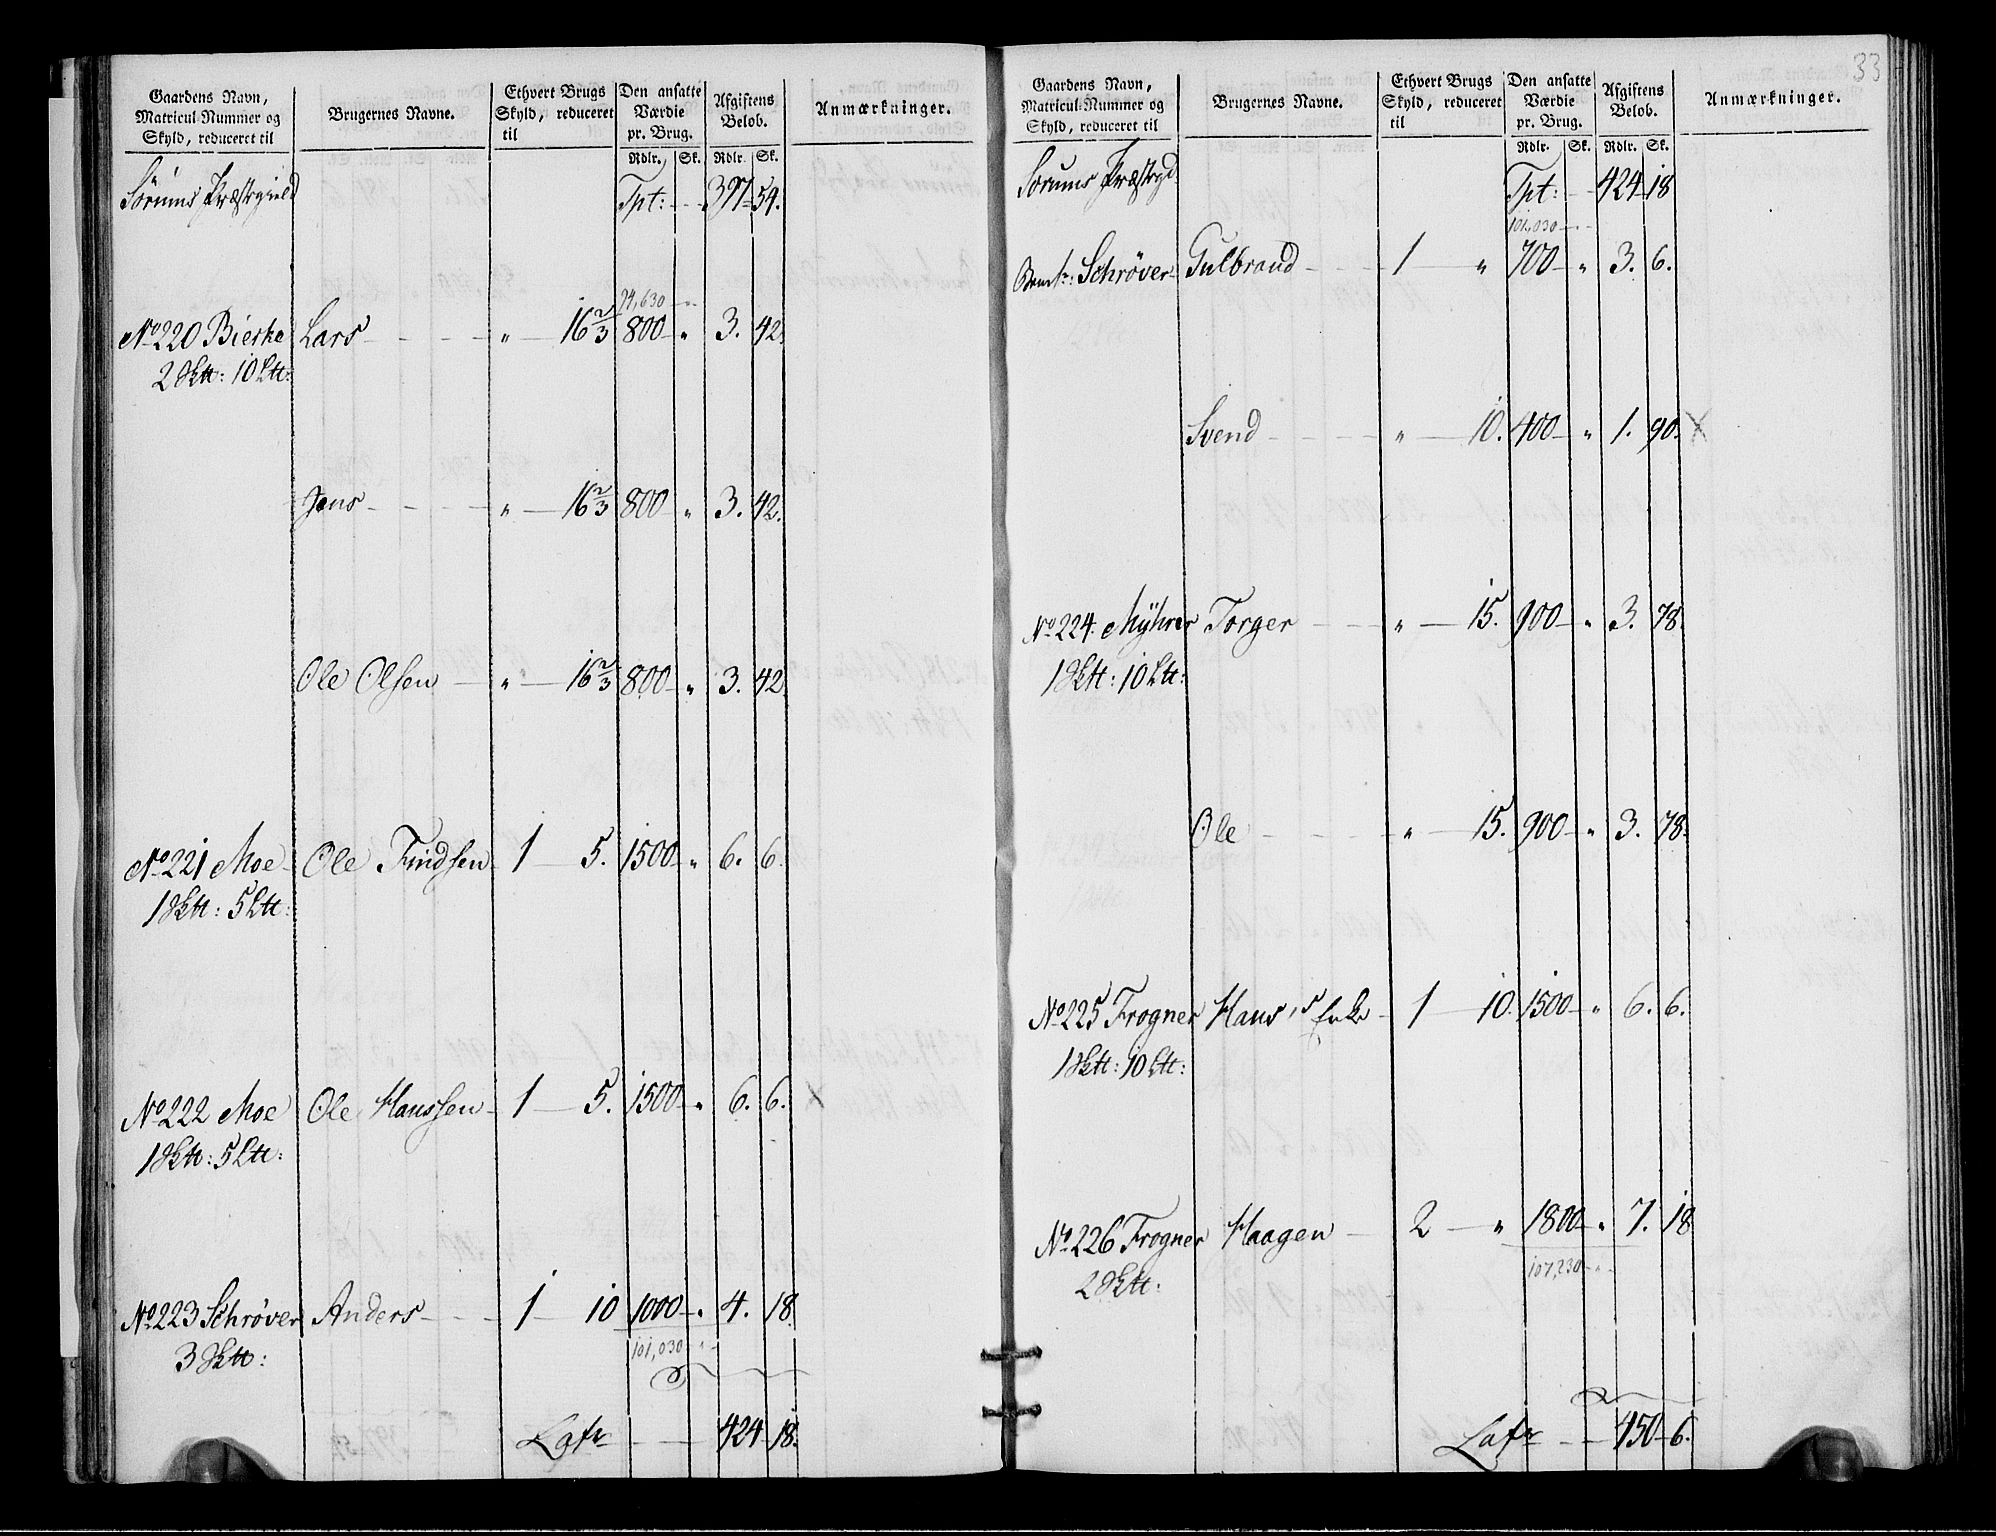 Gaardens Navn, Matricul-Nummer og Skyld, reduceret til | Brugernes Navne. | Ethvert Brugs Skyld, reduceret til | Den ansatte Værdie pr. Brug. | Afgiftens Beløb. | Anmærkninger.
Rdlr. Sk. Rdlr. Sk.
Sørums Præstegield Tpt: - - 397 - 54.
94,630 - "
No 220 Bierke Lars - - - " - 16 2/3 800 - " 3. 42.
2 Skt: 10 Lt:
Jens - - - " - 16 2/3 800 - " 3. 42.
Ole Olsen - " - 16 2/3 800 - " 3. 42
No 221 Moe Ole Findsen 1 - 5. 1500 - " 6. 6.
1 Skt: 5 Lt:
No 222 Moe Ole Hanssen - 1 - 5. 1500 - " 6. 6. X
1 Skt: 5 Lt:
No 223 Schrøver Anders - - - 1 - 10 1000 - " 4. 18.
3 Skt:
101,030 - " -
Latr - - 424 - 18.
33
Gaardens Navn, Matricul-Nummer og Skyld, reduceret til | Brugernes Navne. | Ethvert Brugs Skyld, reduceret til | Den ansatte Værdie pr. Brug. | Afgiftens Beløb. | Anmærkninger.
Rdlr. Sk. Rdlr. Sk.
Sørums Præstegd Tpt: - - 424 - 18
101,030 - " -
Schrøver Gulbrand - - - 1 - " 700 - " 3. 6.
Svend - - - " - 10. 400 - " 1. 90. X
No 224. Myhrer Torger - - - " - 15. 900 - " 3. 78.
1 Skt: 10 Lt:
Ole - - - " - 15. 900 - " 3. 78.
No 225 Frogner Hans's Enke - 1 - 10. 1500 - " 6. 6.
1 Skt: 10 Lt:
No 226 Frogner Haagen - 2 - " 1800 - " 7. 18
2 Skt:
107,230 - " -
Latr - - 450 - 6.